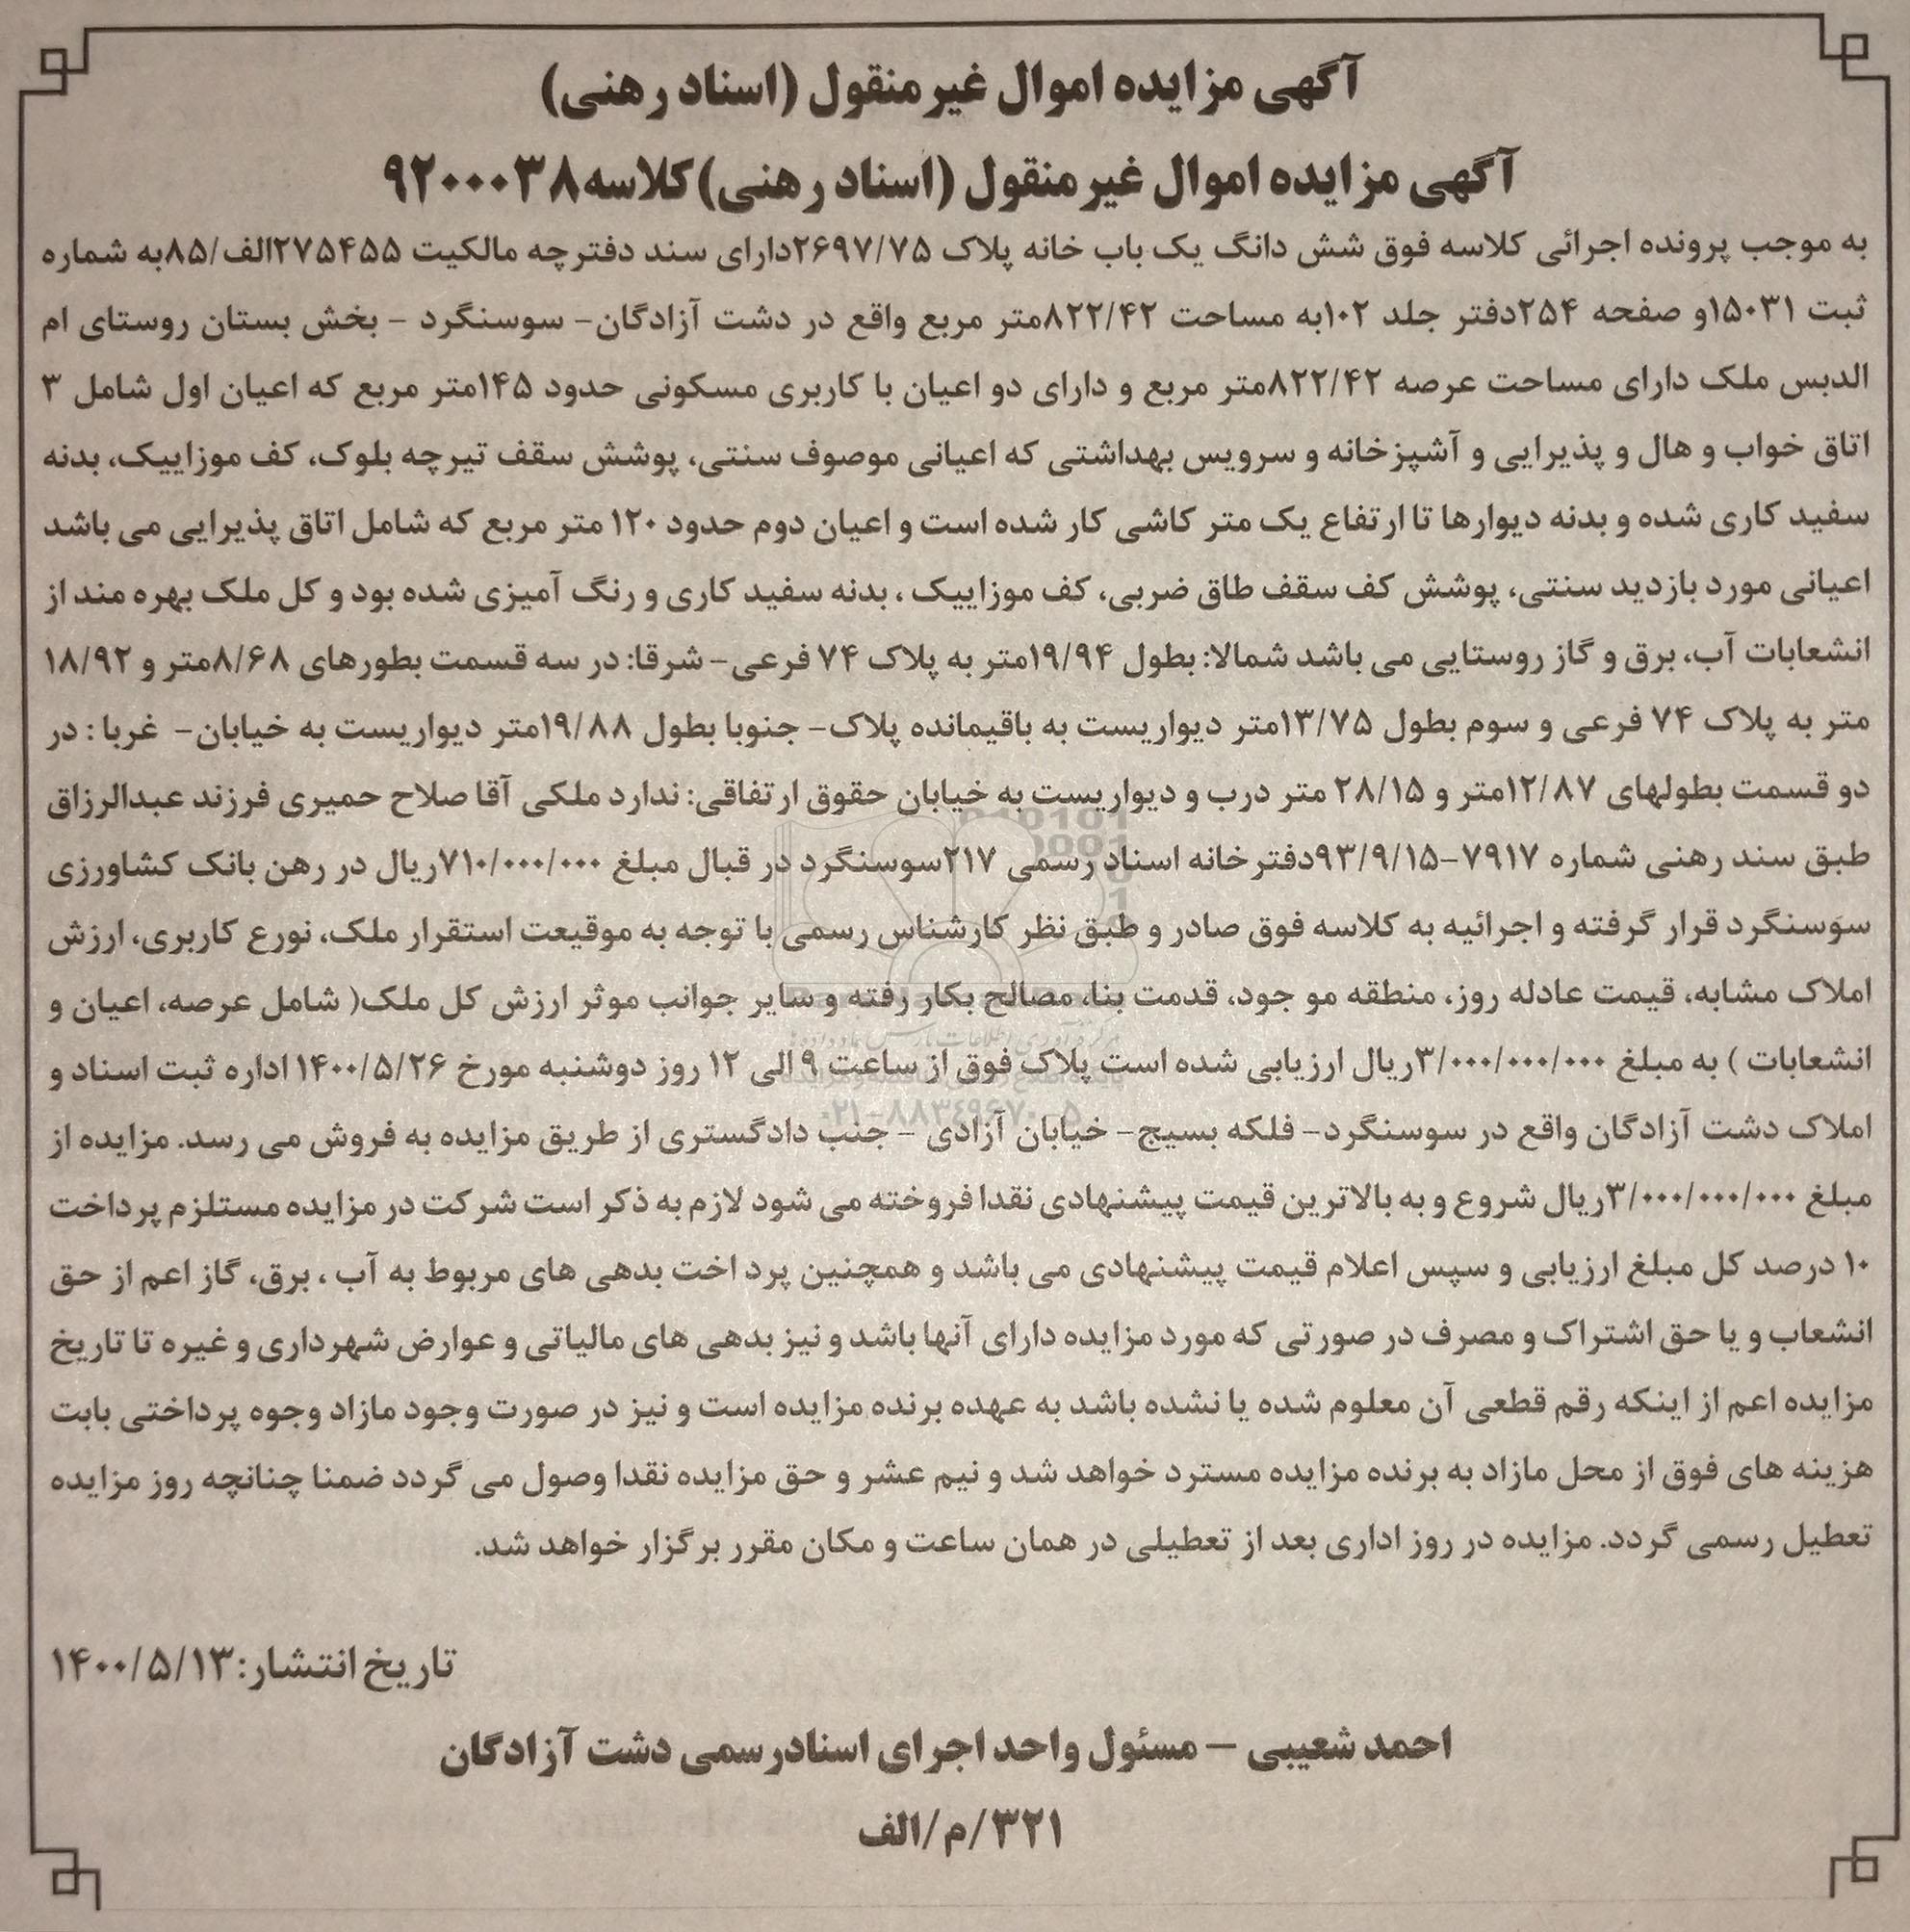 آگهی مزایده اموال غیر منقول (اسناد رهنی)
آگهی مزایده اموال غیر منقول (اسناد رهنی)کلاسه۹۲۰۰۰۳۸
به موجب پرونده اجرائی کلاسه فوق شش دانگ یک باب خانه پلاک ۲۶۹۷/۷۵دارای سند دفترچه مالکیت ۲۷۵۴۵۵الف/۸۵به شماره
ثبت ۱۵۰۳۱و صفحه ۲۵۴دفتر جلد ۱۰۲به مساحت ۸۲۲/۴۲متر مربع واقع در دشت آزادگان- سوسنگرد - بخش بستان روستای ام
الدبس ملک دارای مساحت عرصه ۸۲۲/۴۲متر مربع و دارای دو اعیان با کاربری مسکونی حدود ۱۴۵متر مربع که اعیان اول شامل ۳
اتاق خواب و هال و پذیرایی و آشپزخانه و سرویس بهداشتی که اعیانی موصوف سنتی، پوشش سقف تیرچه بلوک، کف موزاییک، بدنه
سفید کاری شده و بدنه دیوارها تا ارتفاع یک متر کاشی کار شده است و اعیان دوم حدود ۱۲۰ متر مربع که شامل اتاق پذیرایی می باشد
اعیانی مورد بازدید سنتی، پوشش کف سقف طاق ضربی، کف موزاییک ، بدنه سفید کاری و رنگ آمیزی شده بود و کل ملک بهره مند از
انشعابات آب، برق و گاز روستایی می باشد شمالا: بطول ۱۹/۹۴متر به پلاک ۷۴ فرعی- شرقا: در سه قسمت بطورهای ۸/۶۸متر و ۱۸/۹۲
متر به پلاک ۷۴ فرعی و سوم بطول ۱۳/۷۵متر دیواریست به باقیمانده پلاک- جنوبا بطول ۱۹/۸۸متر دیواریست به خیابان- غربا : در
دو قسمت بطولهای ۱۲/۸۷متر و ۲۸/۱۵ متر درب و دیواریست به خیابان حقوق ارتفاقی: ندارد ملکی آقا صلاح حمیری فرزند عبدالرزاق
طبق سند رهنی شماره ۷۹۱۷-۹۳/۹/۱۵دفترخانه اسناد رسمی ۲۱۷سوسنگرد در قبال مبلغ ۷۱۰/۰۰۰/۰۰۰ریال در رهن بانک کشاورزی
سوسنگرد قرار گرفته و اجرائیه به کلاسه فوق صادر و طبق نظر کارشناس رسمی با توجه به موقیعت استقرار ملک، نورع کاربری، ارزش
املاک مشابه، قیمت عادله روز، منطقه مو جود، قدمت بنا، مصالح بکار رفته و سایر جوانب موثر ارزش کل ملک( شامل عرصه، اعیان و
انشعابات ) به مبلغ ۳/۰۰۰/۰۰۰/۰۰۰ریال ارزیابی شده است پلاک فوق از ساعت ۹ الی ۱۲ روز دوشنبه مورخ ۱۴۰۰/۵/۲۶ اداره ثبت اسناد و
املاک دشت آزادگان واقع در سوسنگرد- فلکه بسیج- خیابان آزادی - جنب دادگستری از طریق مزایده به فروش می رسد. مزایده از
مبلغ ۳/۰۰۰/۰۰۰/۰۰۰ریال شروع و به بالاترین قیمت پیشنهادی نقدا فروخته می شود لازم به ذکر است شرکت در مزایده مستلزم پرداخت
۱۰ درصد کل مبلغ ارزیابی و سپس اعلام قیمت پیشنهادی می باشد و همچنین پرد اخت بدهی های مربوط به آب ، برق، گاز اعم از حق
انشعاب و یا حق اشتراک و مصرف در صورتی که مورد مزایده دارای آنها باشد و نیز بدهی های مالیاتی و عوارض شهرداری و غیره تا تاریخ
مزایده اعم از اینکه رقم قطعی آن معلوم شده یا نشده باشد به عهده برنده مزایده است و نیز در صورت وجود مازاد وجوه پرداختی بابت
هزینه های فوق از محل مازاد به برنده مزایده مسترد خواهد شد و نیم عشر و حق مزایده نقدا وصول می گردد ضمنا چنانچه روز مزایده
تعطیل رسمی گردد. مزایده در روز اداری بعد از تعطیلی در همان ساعت و مکان مقرر برگزار خواهد شد.
تاریخ انتشار:۱۴۰۰/۵/۱۳
احمد شعیبی - مسئول واحد اجرای اسناد رسمی دشت آزادگان
۳۲۱/م/الف